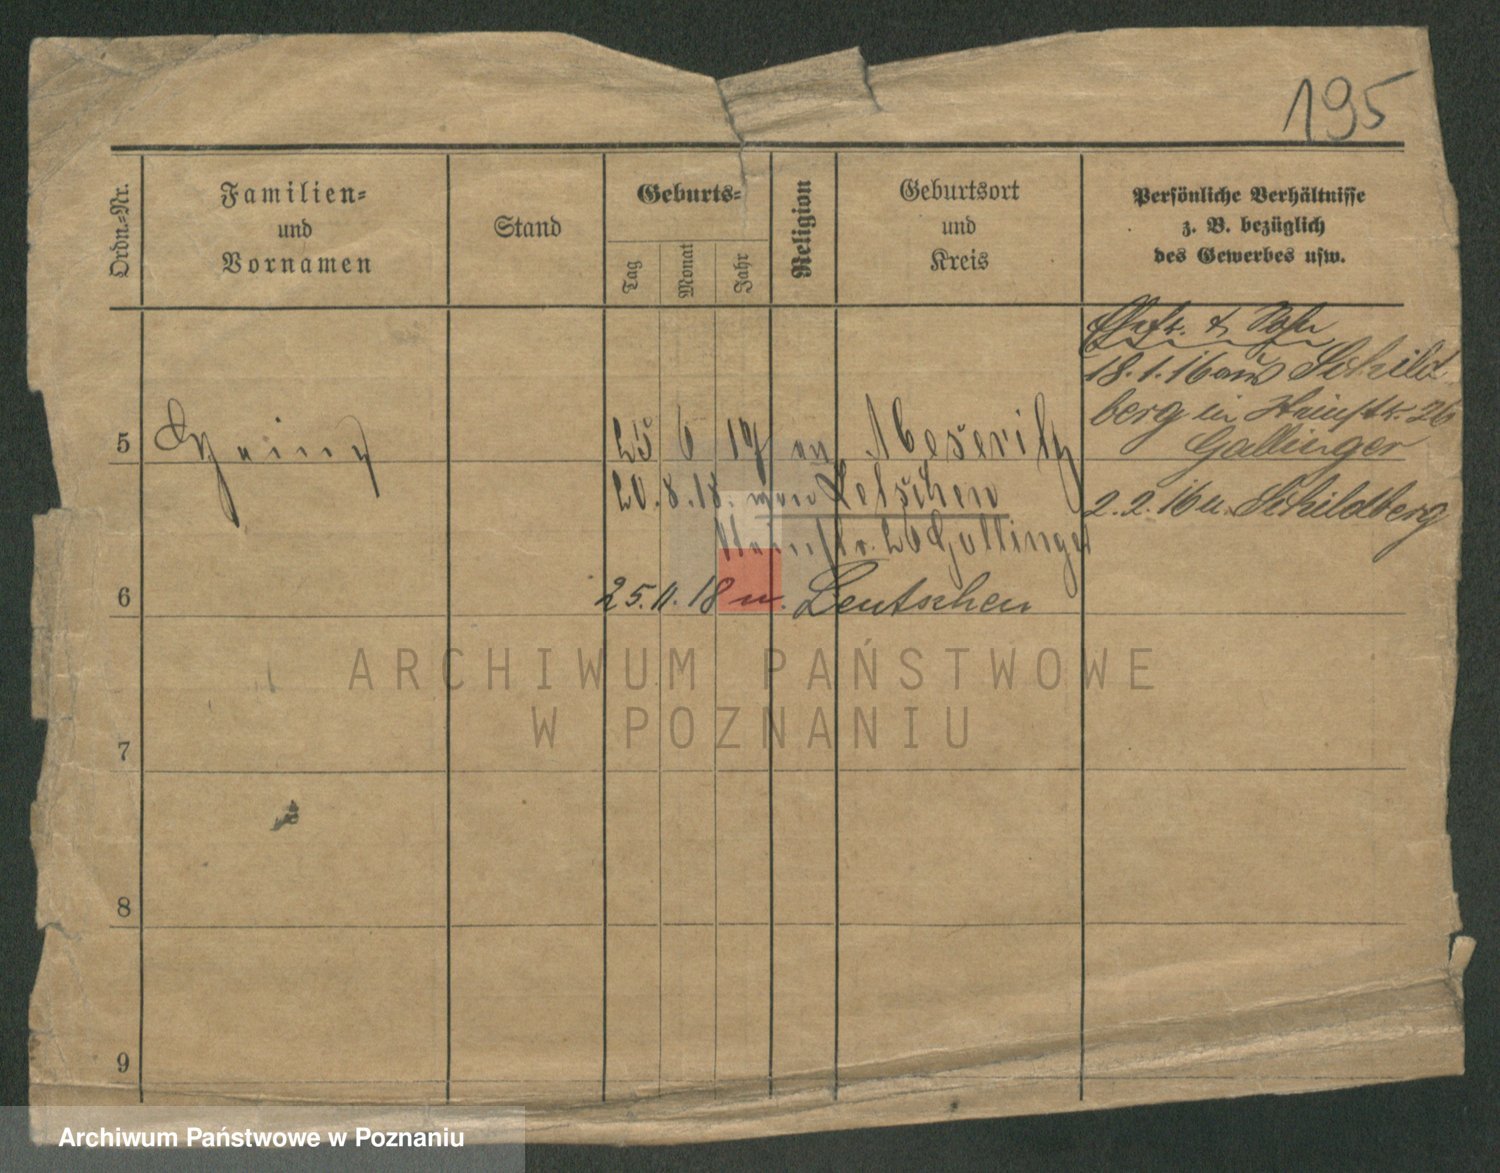 195
Ordn.-Nr.
Familien-
und
Vornamen
Stand
Geburts-
Tag
Monat
Jahr
Religion
Geburtsort
und
Kreis
Persönliche Verhältnisse
z. B. bezüglich
des Gewerbes usw.
18.1.16 aus Schild
berg in 26
Gallinger
2.2.16 u. Schildberg
5
25 6 17 an Meseritz
20.8.18. von
26 Gallinger
6
25.11.18 u. Lentschen
7
8
9
ARCHIWUM PAŃSTWOWE
W POZNANIU
Archiwum Państwowe w Poznaniu